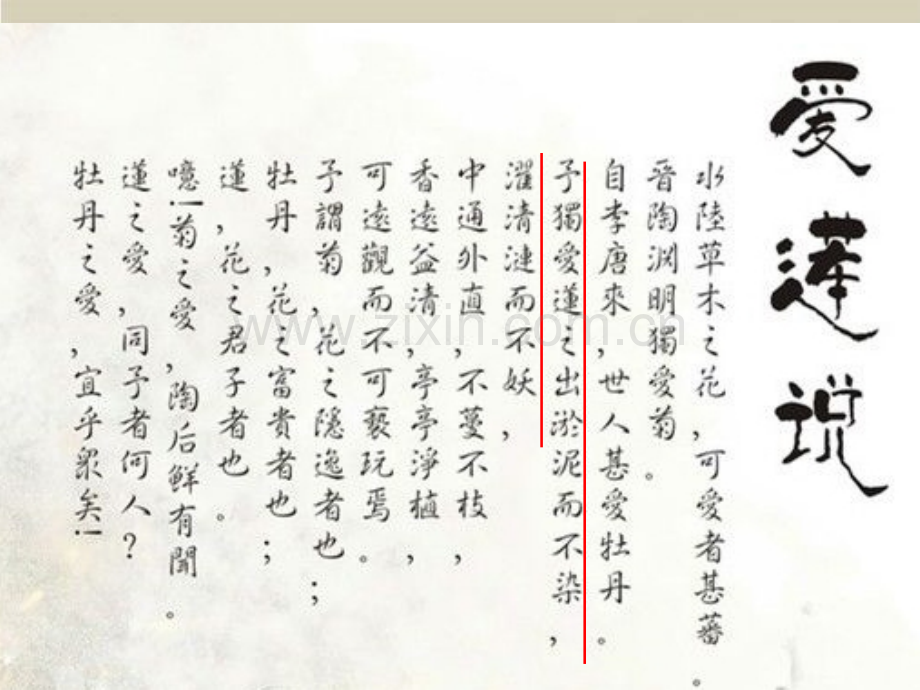 爱莲说
水陸草木之花,可愛者甚蕃。
晉陶渊明獨愛菊。
自李唐來,世人甚愛牡丹。
予獨愛蓮之出淤泥而不染,
濯清漣而不妖,
中通外直,不蔓不枝,
香遠益清,亭亭淨植,
可遠觀而不可褻玩焉。
予謂菊,花之隱逸者也;
牡丹,花之富貴者也;
蓮,花之君子者也。
噫!菊之愛,陶后鮮有聞。
蓮之愛,同予者何人?
牡丹之愛,宜乎衆矣!
www.zixin.com.cn